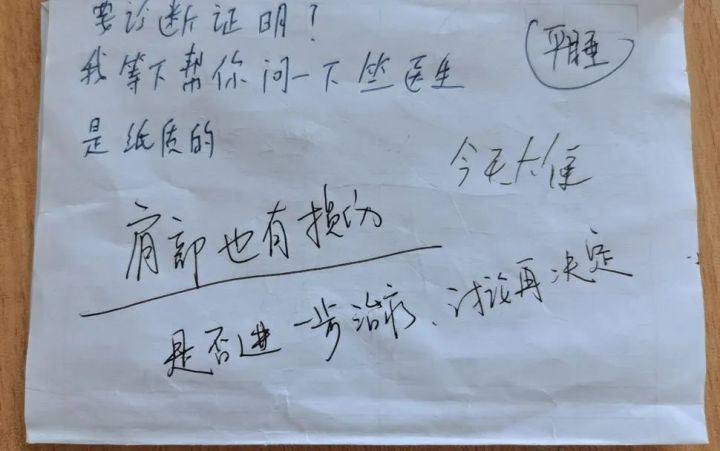 要诊断证明?
我等下帮你问一下竺医生
平睡
是纸质的
今天大便
肩部也有损伤
是否进一步治疗、讨论再决定